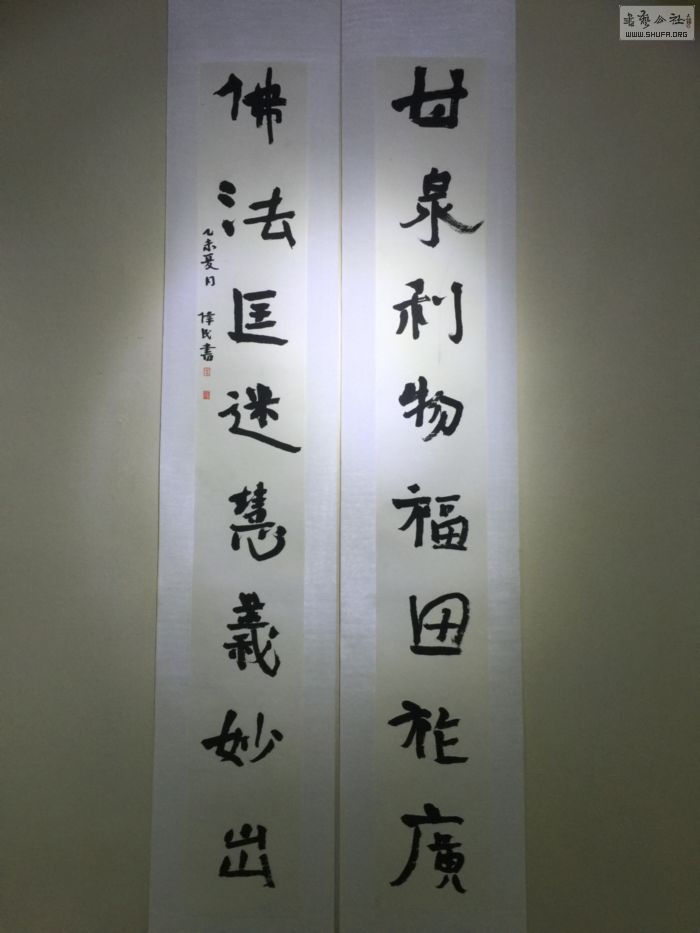 甘泉利物福田祚廣
佛法匡迷慧義妙出
乙未夏月 偉民書
書藝公社
WWW.SHUFA.ORG